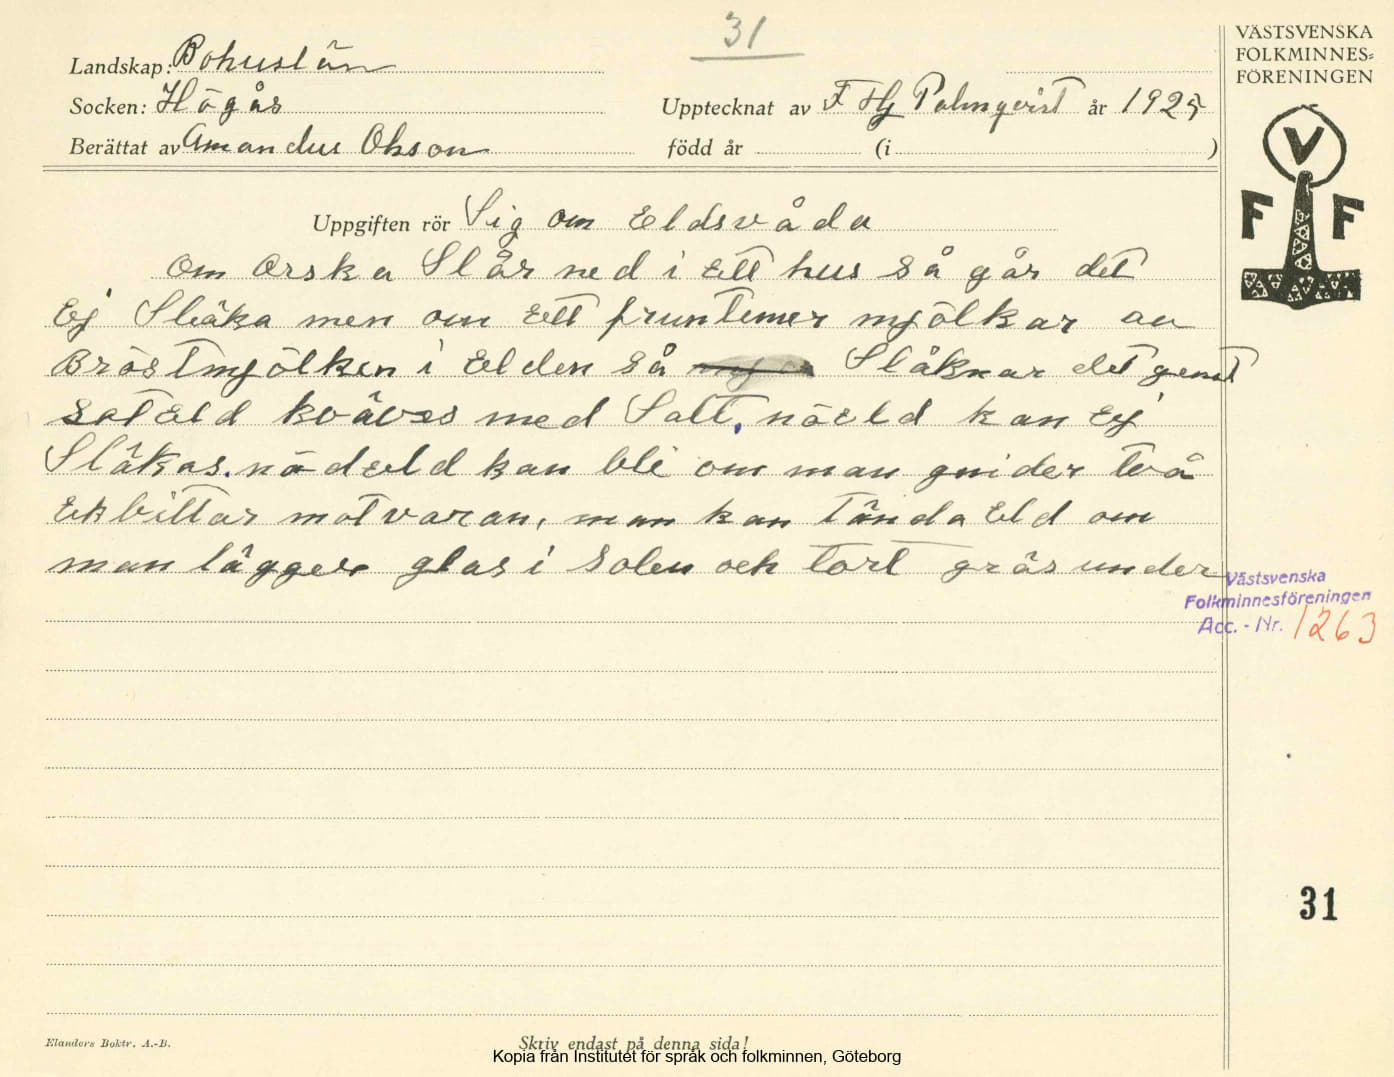 31
VÄSTSVENSKA
FOLKMINNES=
FÖRENINGEN
Landskap: Bohuslän
Socken: Högås
Upptecknat av F Hj Palmqvist år 1925
Berättat av Amandus Olsson
född år (i )
V
F F
Uppgiften rör Sig om Eldsvåda
om Orska Slår ned i Ett hus så går det
Ej Släka men om Ett fruntimer mjölkar av
Bröstmjölken i Elden så Släknar det genst
sot Eld kväves med Salt, nöeld kan Ej
Släkas. nödeld kan bli om man gnider två
Ekbittar motvaran, man kan Tända Eld om
man lägger glas i Solen och Tort gräs under
Västsvenska
Folkminnesföreningen
Acc. - Nr. 1263
31
Elanders Boktr. A.-B.
Skriv endast på denna sida!
Kopia från Institutet för språk och folkminnen, Göteborg